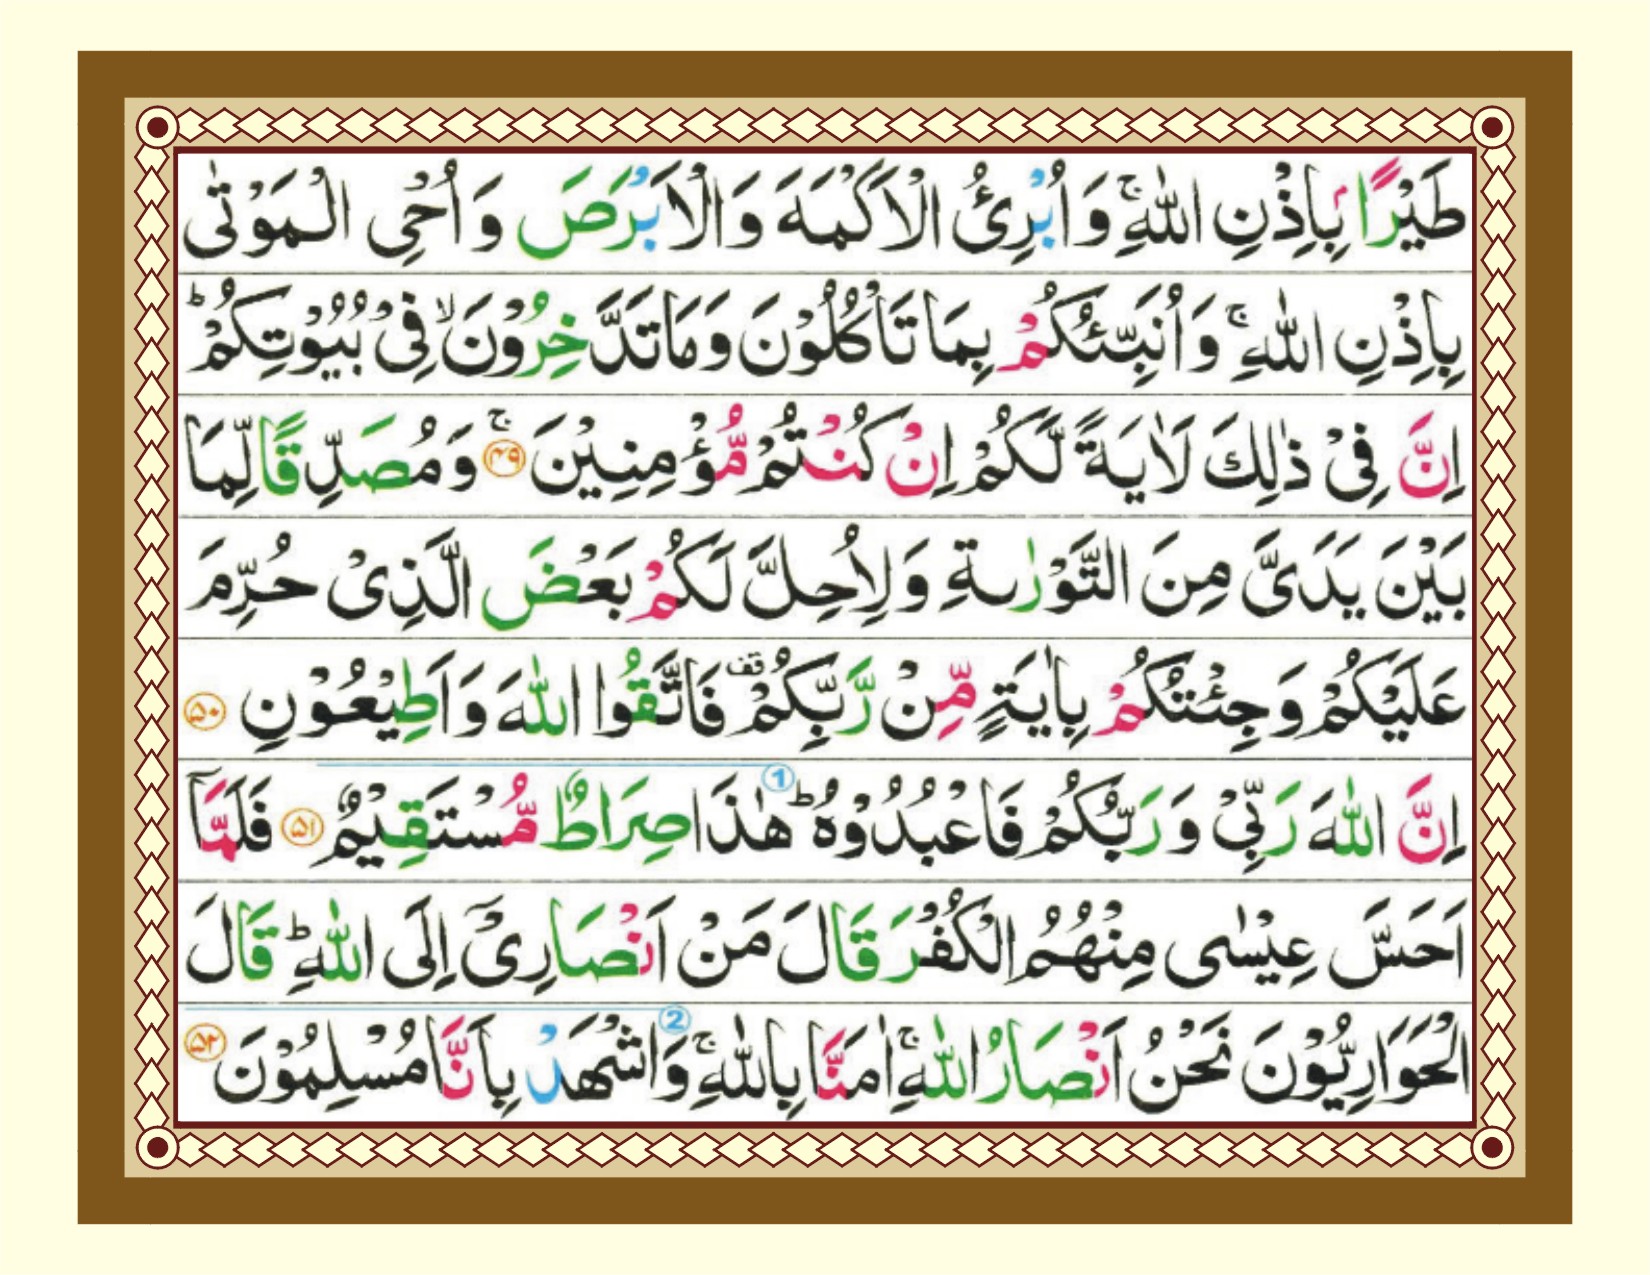 طَيْرًۢا بِاِذْنِ اللّٰهِ ۚ وَاُبْرِئُ الْاَكْمَهَ وَالْاَبْرَصَ وَاُحْىِ الْمَوْتٰى
بِاِذْنِ اللّٰهِ ۚ وَاُنَبِّئُكُمْ بِمَا تَاْكُلُوْنَ وَمَا تَدَّخِرُوْنَ ۙ فِىْ بُيُوْتِكُمْ ؕ
اِنَّ فِىْ ذٰلِكَ لَاٰيَةً لَّكُمْ اِنْ كُنْتُمْ مُّؤْمِنِيْنَ ۚ ۴۹ وَمُصَدِّقًا لِّمَا
بَيْنَ يَدَىَّ مِنَ التَّوْرٰٮةِ وَلِاُحِلَّ لَكُمْ بَعْضَ الَّذِىْ حُرِّمَ
عَلَيْكُمْ وَجِئْتُكُمْ بِاٰيَةٍ مِّنْ رَّبِّكُمْ قف فَاتَّقُوا اللّٰهَ وَاَطِيْعُوْنِ ۵۰
اِنَّ اللّٰهَ رَبِّىْ وَرَبُّكُمْ فَاعْبُدُوْهُ ؕ 1 هٰذَا صِرَاطٌ مُّسْتَقِيْمٌ ۵۱ فَلَمَّاۤ
اَحَسَّ عِيْسٰى مِنْهُمُ الْكُفْرَ قَالَ مَنْ اَنْصَارِىْۤ اِلَى اللّٰهِ ؕ قَالَ
الْحَوَارِيُّوْنَ نَحْنُ اَنْصَارُ اللّٰهِ ۚ اٰمَنَّا بِاللّٰهِ ۚ 2 وَاشْهَدْ بِاَنَّا مُسْلِمُوْنَ ۵۲